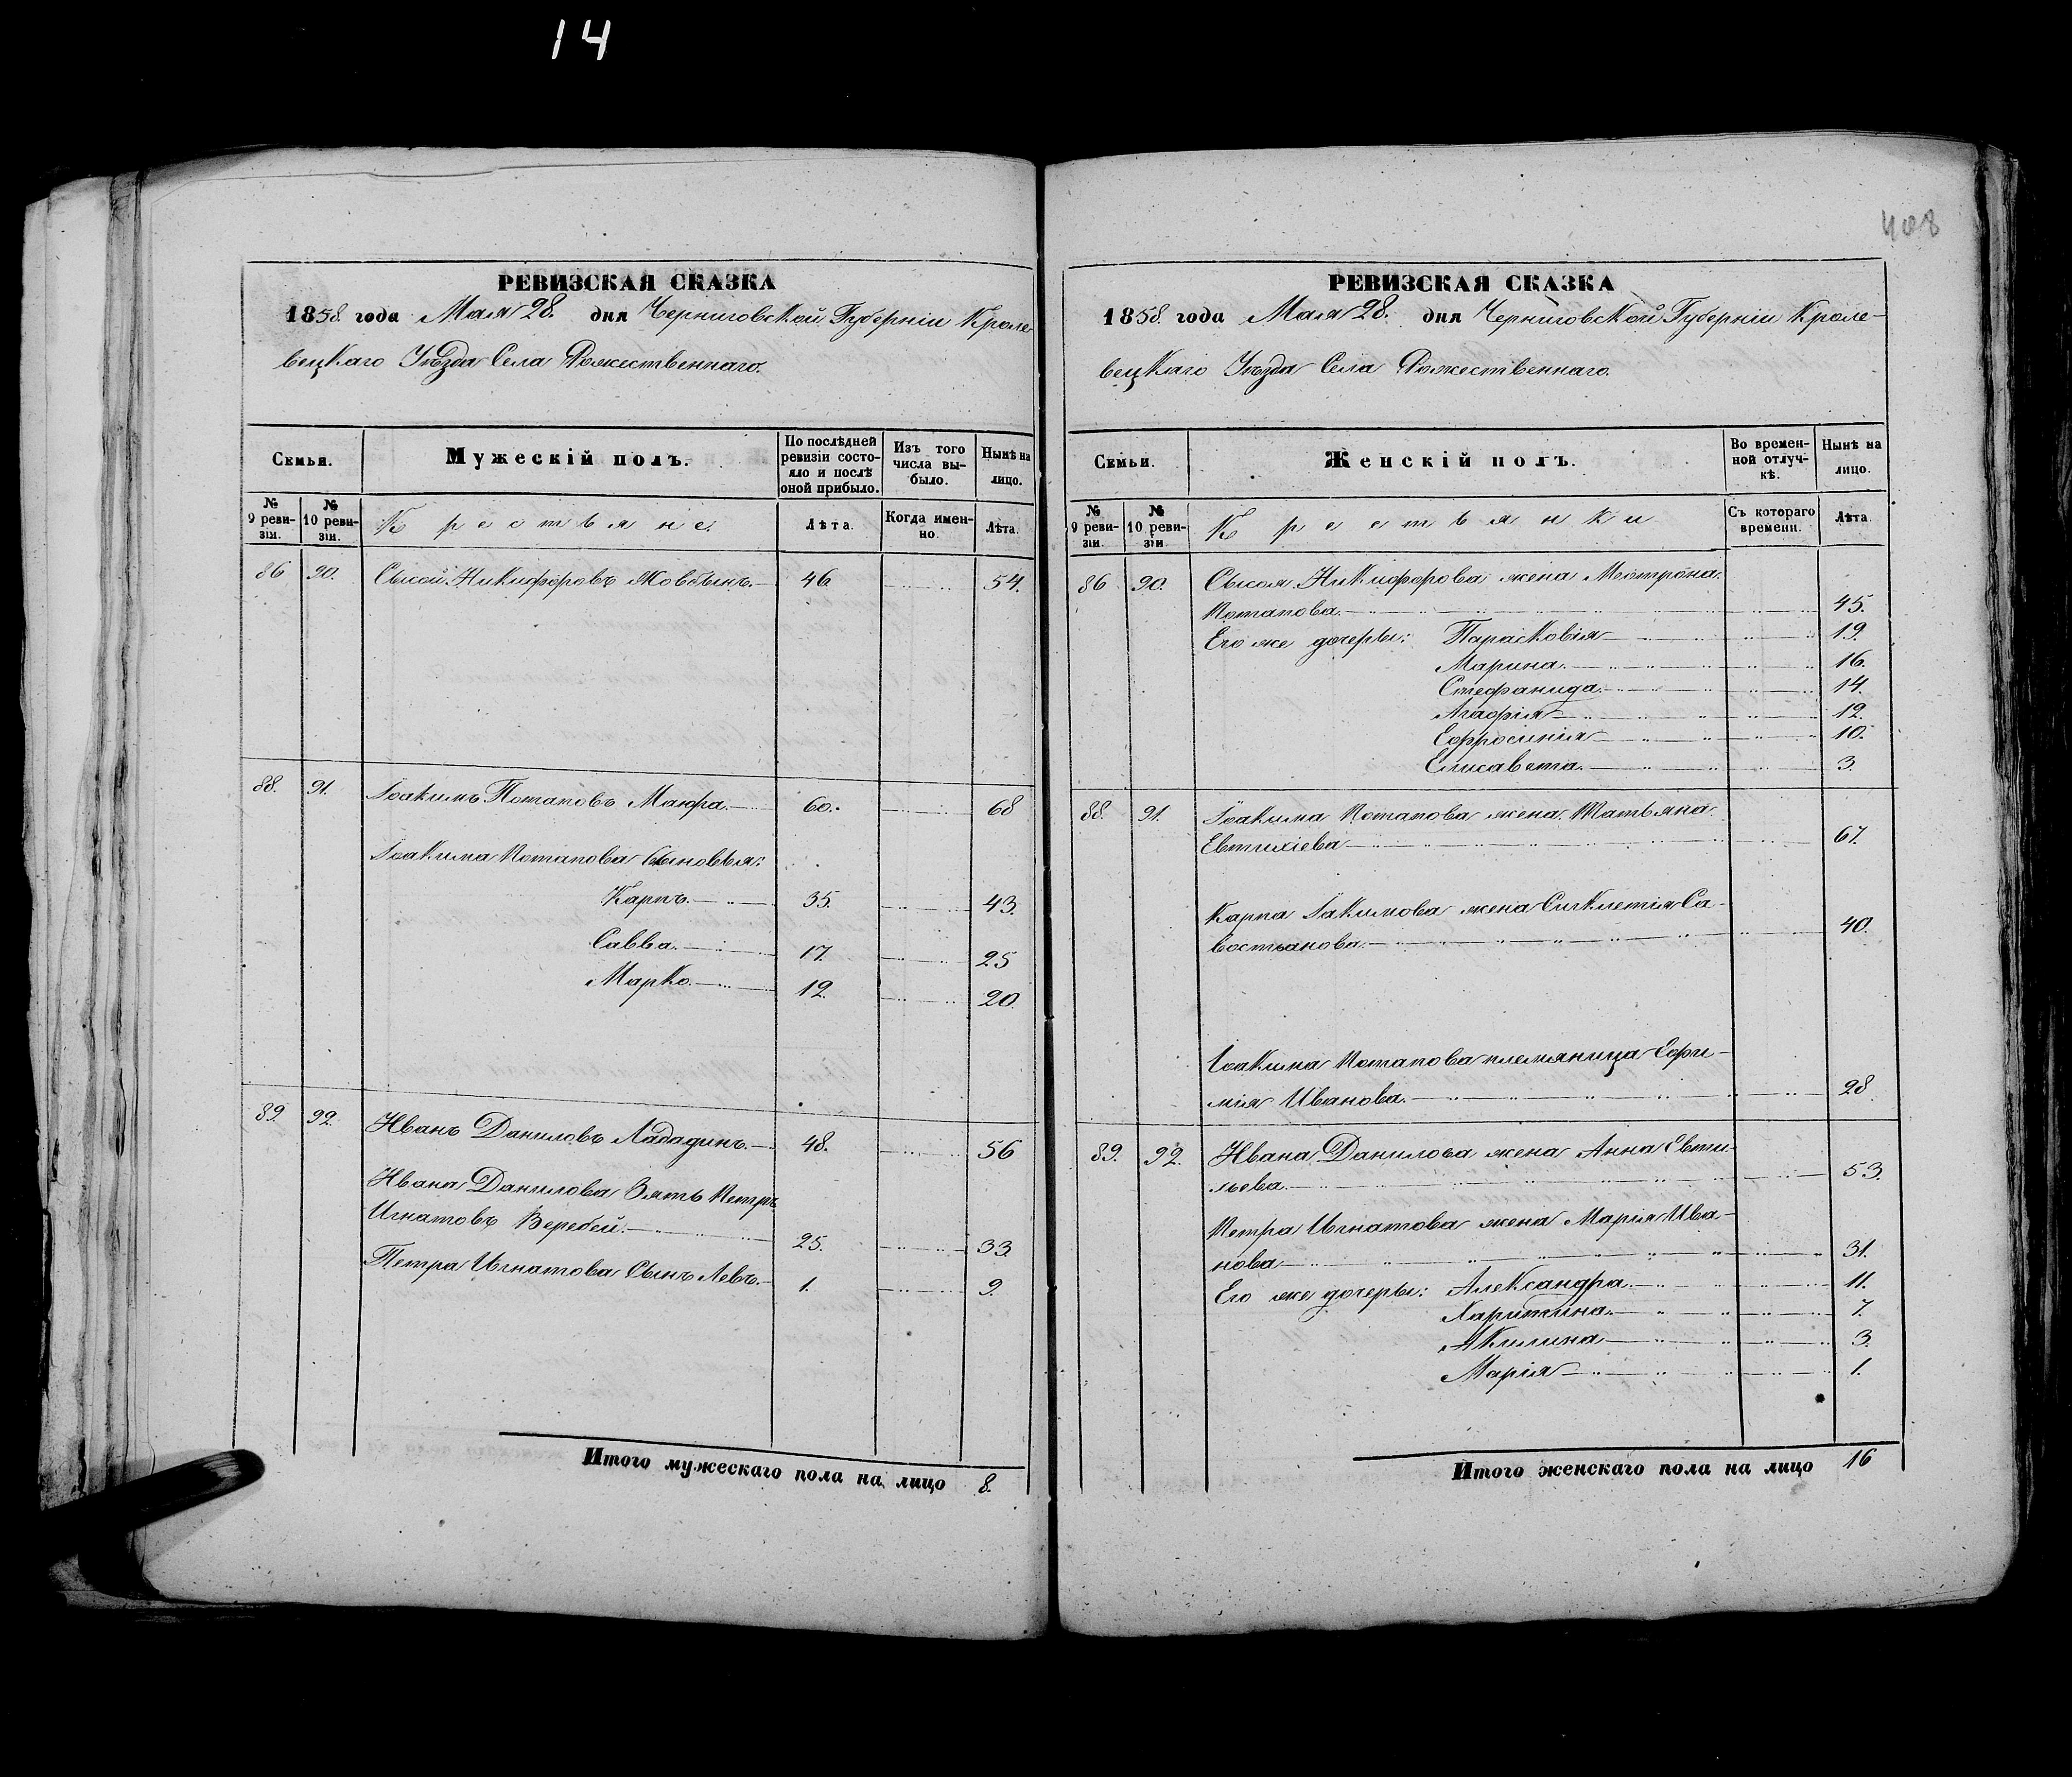 14
408
РЕВИЗСКАЯ СКАЗКА
1858. года Маія 28. дня Черниговской Губерніи Кроле-
вецкаго Уѣзда Села Рожественнаго.
Семьи.
Мужескій полъ.
По послѣдней ревизіи состояло и послѣ оной прибыло.
Изъ того числа выбыло.
Нынѣ на лицо.
№ 9 ревизіи.
№ 10 ревизіи.
Крестьяне.
Лѣта.
Когда именно.
Лѣта.
86 90. Сысой Никифоровъ 46 54.
88. 91. Іоакимъ Потаповъ Маюра. 60. 68
Іоакима Потапова Сыновья:
Карпъ. 35. 43.
Савва. 17. 25
Марко. 12. 20.
89. 92. Иванъ Даниловъ Лададинъ. 48. 56
Ивана Данилова Зять Петръ
Игнатовъ Веребей. 25. 33.
Петра Игнатова Сынъ Левъ. 1. 9.
Итого мужескаго пола на лицо 8.
РЕВИЗСКАЯ СКАЗКА
1858. года Маія 28. дня Черниговской Губерніи Кроле-
вецкаго Уѣзда Села Рожественнаго.
Семьи.
Женскій полъ.
Во временной отлучкѣ.
Нынѣ на лицо.
№ 9 ревизіи.
№ 10 ревизіи
Крестьянки
Съ котораго времени.
Лѣта.
86 90. Сысоя Никифорова жена Мотрона
Потапова. 45.
Его же дочеры: Парасковія 19.
Марина. 16.
Стефанида. 14.
Агафія 12.
Ефросинія 10.
Елисавета. 3.
88. 91. Іоакима Потапова жена Татьяна
Евтихіева 67.
Карпа Іакимова жена Сигклетія Са-
востьанова. 40.
Іоакима Потапова племяница Ефи-
мія Иванова. 28.
89. 92. Ивана Данилова жена Анна Евти-
хьева. 53.
Петра Игнатова жена Марія Ива-
нова 31.
Его же дочеры: Александра. 11.
Харитина. 7.
Акилина 3.
Марія 1.
Итого женскаго пола на лицо 16